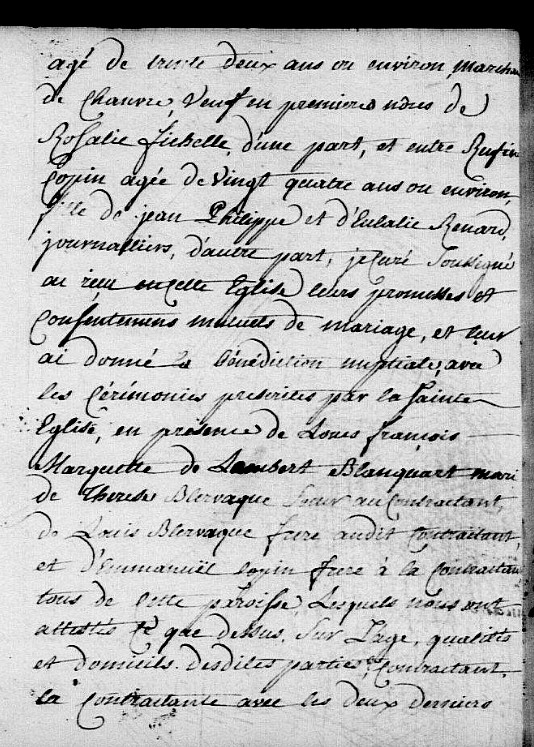 agé de trente deux ans ou environ, marchan
de Chanvre, Veuf en premieres noces de
Rosalie fichelle, d'une part, et entre Rufine
Copin agée de vingt quatre ans ou environ,
fille de jean Philippe et d'Eulalie Renard,
journalliers, d'autre part, je Curé Soussigné
ai reçu en cette Eglise leurs promesses et
Consentemens mutuels de mariage, et leur
ai donné la Bénédiction nuptiale, avec
les Cérémonies prescrites par la Sainte
Eglise, en presence de Louis françois
Marquette de Lambert Blanquart mari
de Therese Blervaque Soeur au Contractant,
de Louis Blervaque frere audit Contractant,
et d'Emmanuël Copin frere à la Contractan
tous de cette paroisse, Lesquels nous ont
attestés Ce que dessus, Sur l'age, qualités
et domicils desdites parties, Contractant,
la Contractante avec les deux derniers